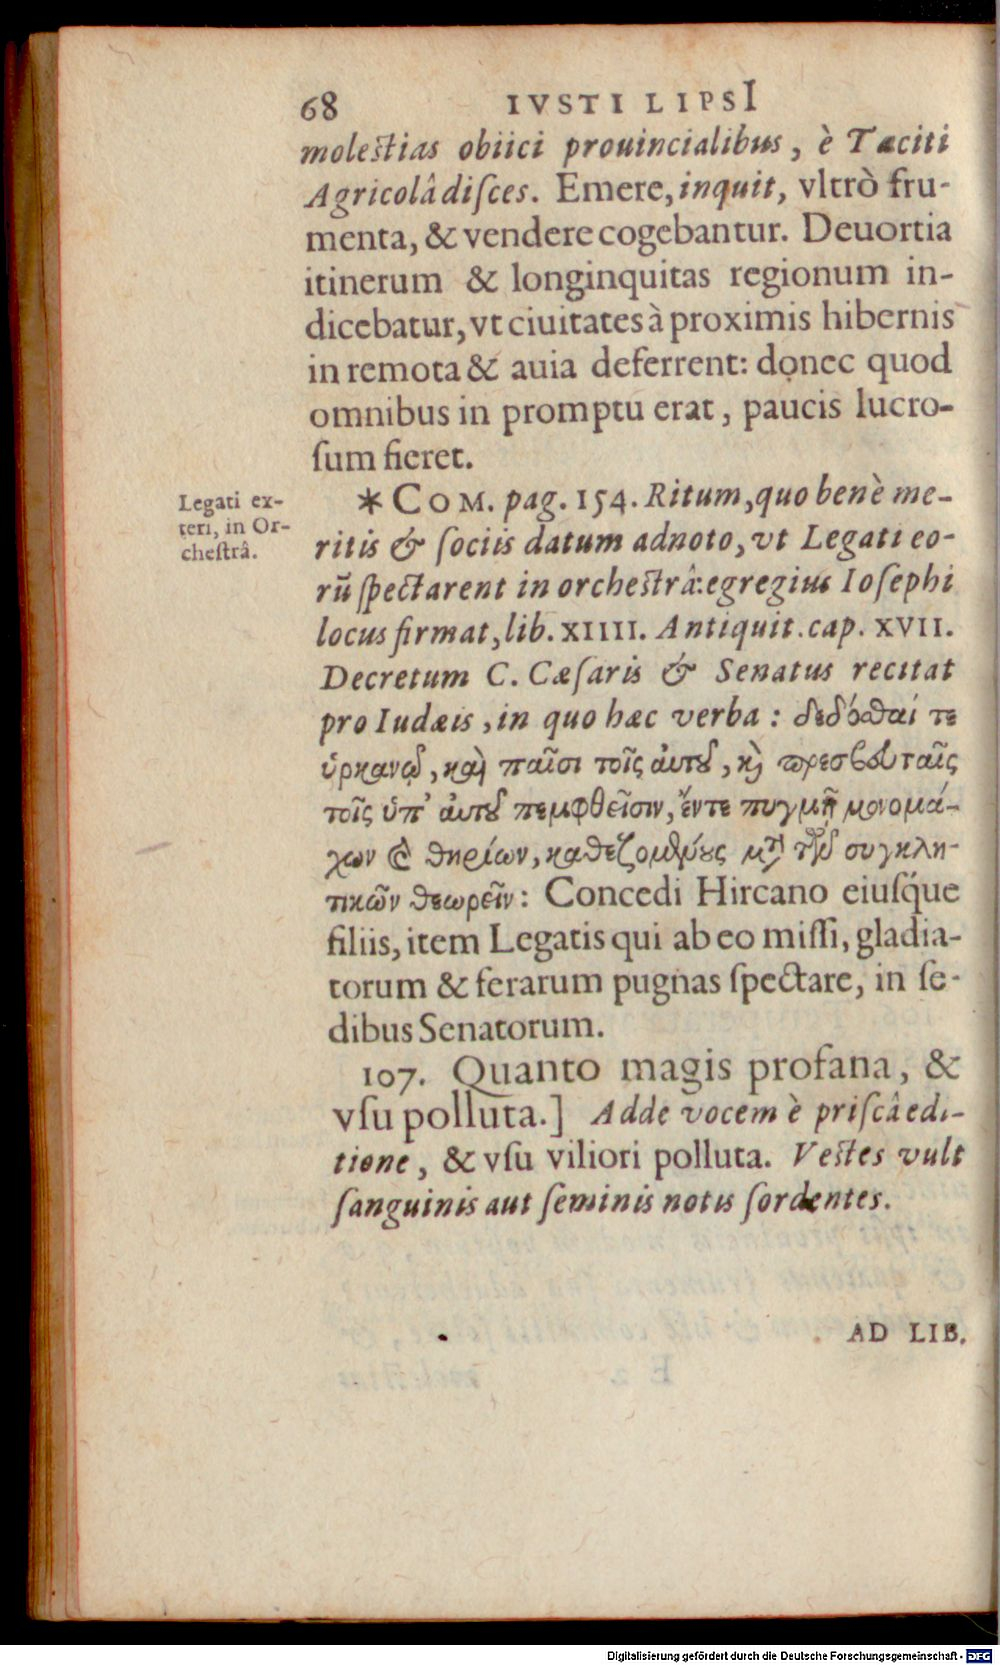 68 IVSTI LIPSI
molestias obiici prouincialibus, è Taciti
Agricolâ disces. Emere, inquit, vltrò fru-
menta, & vendere cogebantur. Deuortia
itinerum & longinquitas regionum in-
dicebatur, vt ciuitates à proximis hibernis
in remota & auia deferrent: donec quod
omnibus in promptu erat, paucis lucro-
sum fieret.
Legati ex-
teri, in Or-
chestrâ.
* COM. pag. 154. Ritum, quo benè me-
ritis & sociis datum adnoto, vt Legati eo-
rũ spectarent in orchestrâ: egregius Iosephi
locus firmat, lib. XIIII. Antiquit. cap. XVII.
Decretum C. Cæsaris & Senatus recitat
pro Iudæis, in quo hæc verba: δεδόσθαί τε
ὑρκανῷ, καὶ παῖσι τοῖς αὐτοῦ, κὶ πρεσβευταῖς
τοῖς ὑπ' αὐτοῦ πεμφθεῖσιν, ἔντε πυγμῇ μονομά-
χων καὶ θηρίων, καθεζομένους μετὰ τῶν συγκλη-
τικῶν θεωρεῖν: Concedi Hircano eiusq́ue
filiis, item Legatis qui ab eo missi, gladia-
torum & ferarum pugnas spectare, in se-
dibus Senatorum.
107. Quanto magis profana, &
vsu polluta.] Adde vocem è priscâ edi-
tione, & vsu viliori polluta. Vestes vult
sanguinis aut seminis notis sordentes.
AD LIB.
Digitalisierung gefördert durch die Deutsche Forschungsgemeinschaft - DFG